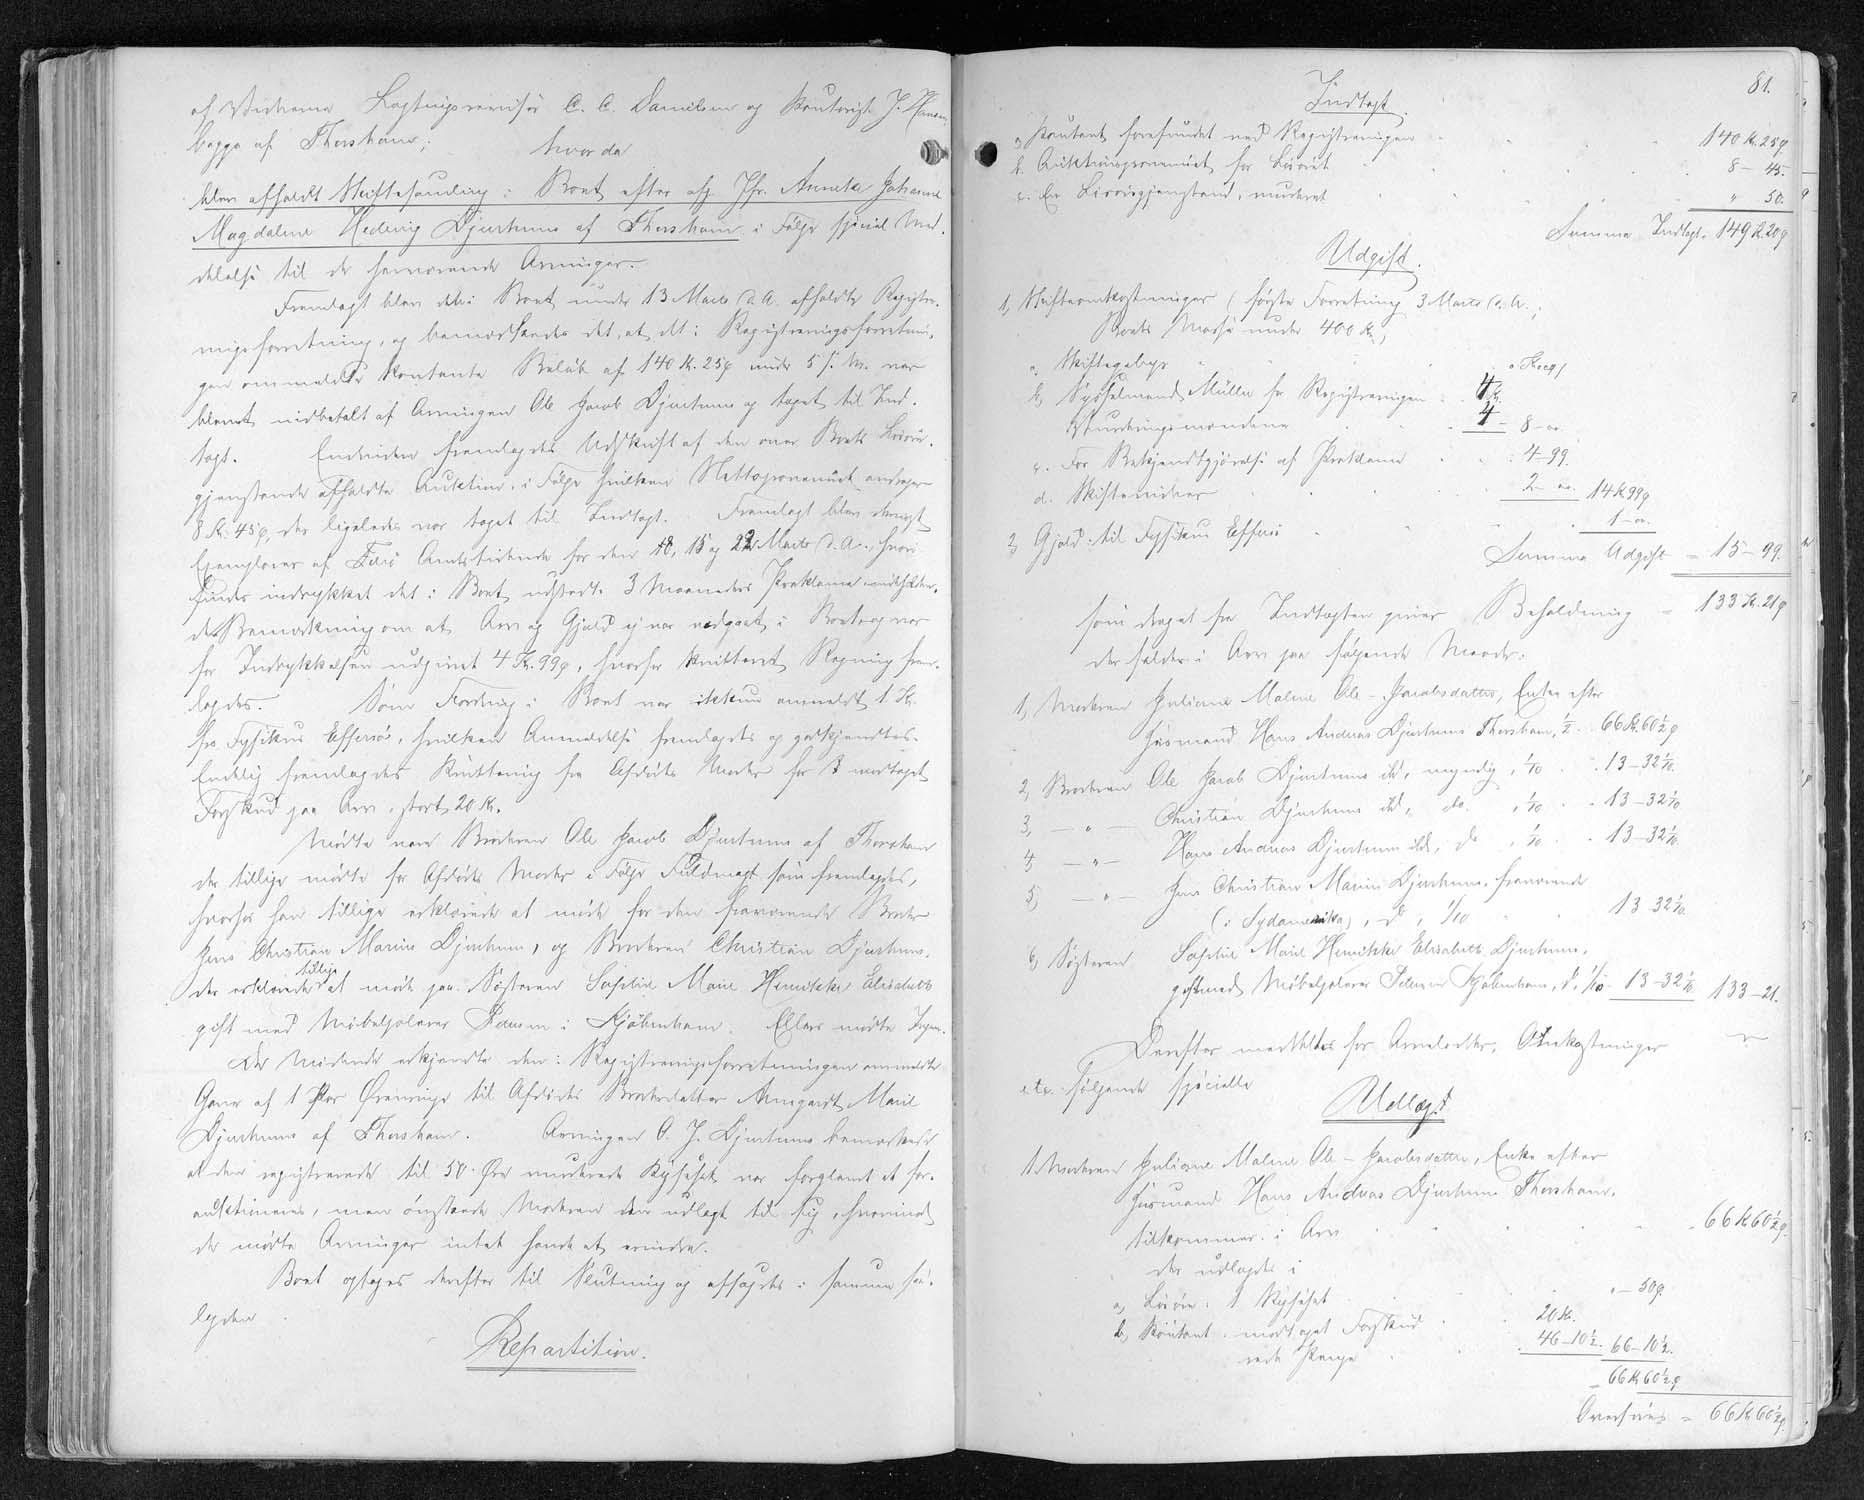 af Vidnerne Lagtingsrevisor C. C. Danielsen og Kontorist J. Hansen,
begge af Thorshavn;
hvorda
blev afholdt Skiftesamling i Boet efter afg. Jfr. Annette Johanne
Magdalene Hedevig Djurhuus af Thorshavn i Følge special Med-
delelse til de henværende Arvinger.
Fremlagt blev det i Boet under 13 Marts d. A. afholdte Registre-
ringsforretning, og bemærkedes det, at det i Registreringsforretnin-
gen ommeldte kontante Beløb af 140 Kr. 25 ø under 5 s. M. var
blevet indbetalt af Arvingen Ole Jacob Djurhuus og taget til Ind-
tægt. Endvidere fremlagdes Udskrift af den over Boets Løsøre-
gjenstande afholdte Auktion, i Følge hvilken Nettoprovenuet androg
8 Kr. 45 ø, der ligeledes var taget til Indtægt. Fremlagt blev dernæst
Exemplarer af Færø Amtstidende for den 18, 15 og 22 Marts d. A., hvori
findes indrykket det i Boet udstedte 3 Maaneders Proklama indeholden-
de Bemærkning om at Arv og Gjæld ej var vedgaaet i Boet og var
for Indrykkelsen udgivet 4 Kr. 99 ø, hvorfor kvitteret Regning frem-
lagdes. Som Fordring i Boet var ikkun anmeldt 1 Kr.
fra Fysikus Effersøe, hvilken Anmeldelse fremlagdes og godkjendtes.
Endelig fremlagdes Kvittering fra Afdødes Moder for et modtaget
Forskud paa Arv, stort 20 Kr.
Mødte vare Broderen Ole Jacob Djurhuus af Thorshavn
der tillige mødte for Afdødes Moder i Følge Fuldmagt som fremlagdes,
hvorhos han tillige erklærede at møde for den fraværende Broder
Jens Christian Marius Djurhuus, og Broderen Christian Djurhuus,
der erklærede tillige at møde paa Søsteren Sophie Marie Henrikke Elisabeth
gift med Møbelpolerer Petersen i Kjøbenhavn. Ellers mødte Ingen.
De Mødende erkjendte den i Registreringsforretningen anmeldte
Gave af 1 Par Ørenringe til Afdødes Broderdatter Armgardt Marie
Djurhuus af Thorshavn. Arvingen O. J. Djurhuus bemærkede
at den registrerede til 50 Øre vurderede Kyse var forglemt at for-
auktioneres, men ønskede Moderen den udlagt til sig, hvorimod
de mødte Arvinger intet havde at erindre.
Boet optoges derefter til Slutning og afsagdes i samme saa-
lydende
Repartition.
81.
Indtægt.
a, Kontant forefundet ved Registreringen 140 Kr. 25 ø
b. Auktionsprovenuet for Løsøret 8 – 45.
c. En Løsøregjenstand, vurderet " 50.
Summa Indtægt = 149 Kr. 20 ø
Udgift.
1, Skifteomkostninger (første Forretning 3 Marts d. A.,
Boets Masse under 400 Kr.)
a, Skiftegebyr " Kr " ø
b, Sysselmand Müller for Registreringen 4 Kr.
Vurderingsmændene 4 – 8 – "
c. For Bekjendtgjørelse af Proklama 4 – 99.
d. Skiftevidner 2 – " 14 Kr 99 ø
2, Gjæld: til Fysikus Effersøe 1 – "
Summa Udgift = 15 – 99.
som draget fra Indtægten giver Beholdning = 133 Kr. 21 ø
der falder i Arv paa følgende Maade:
1, Moderen Juliane Malene Ole-Jacobsdatter, Enke efter
Husmand Hans Andreas Djurhuus Thorshavn, ½ 66 Kr. 60½ ø
2, Broderen Ole Jacob Djurhuus ibd, myndig, 1/10 13 – 32 1/10.
3, — " — Christian Djurhuus ibd, do. 1/10 13 – 32 1/10
4, — " — Hans Andreas Djurhuus ibd, do 1/10 13 – 32 1/10.
5, — " — Jens Christian Marius Djurhuus, fraværende
(i Sydamerika), do, 1/10 13 – 32 1/10.
6, Søsteren Sophie Marie Henrikke Elisabeth Djurhuus,
gift med Møbelpolerer Petersen Kjøbenhavn, do, 1/10 13 – 32 1/10 133 – 21.
Derefter meddeles for Arvelodder, Omkostninger
etc. følgende specielle
Udlæg:
1. Moderen Juliane Malene Ole-Jacobsdatter, Enke efter
Husmand Hans Andreas Djurhuus Thorshavn,
tilkommer i Arv 66 Kr 60½ ø.
der udlægges i
a, Løsøre: 1 Kyse " – 50 ø.
b, Kontant: modtaget Forskud 20 Kr.
rede Penge 46 – 10½. 66 – 10½.
66 Kr 60½ ø
Overføres = 66 Kr 60½ ø.